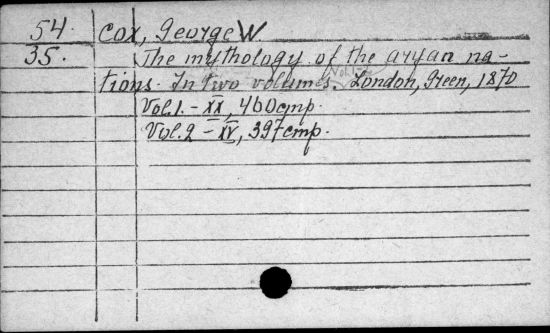 54. Cox, George W.
35. The mythology of the aryan na-
tions. In two volumes. London, Green, 1870
Vol. 1. - XX, 460 cmp.
Vol. 2 - XV, 397 cmp.